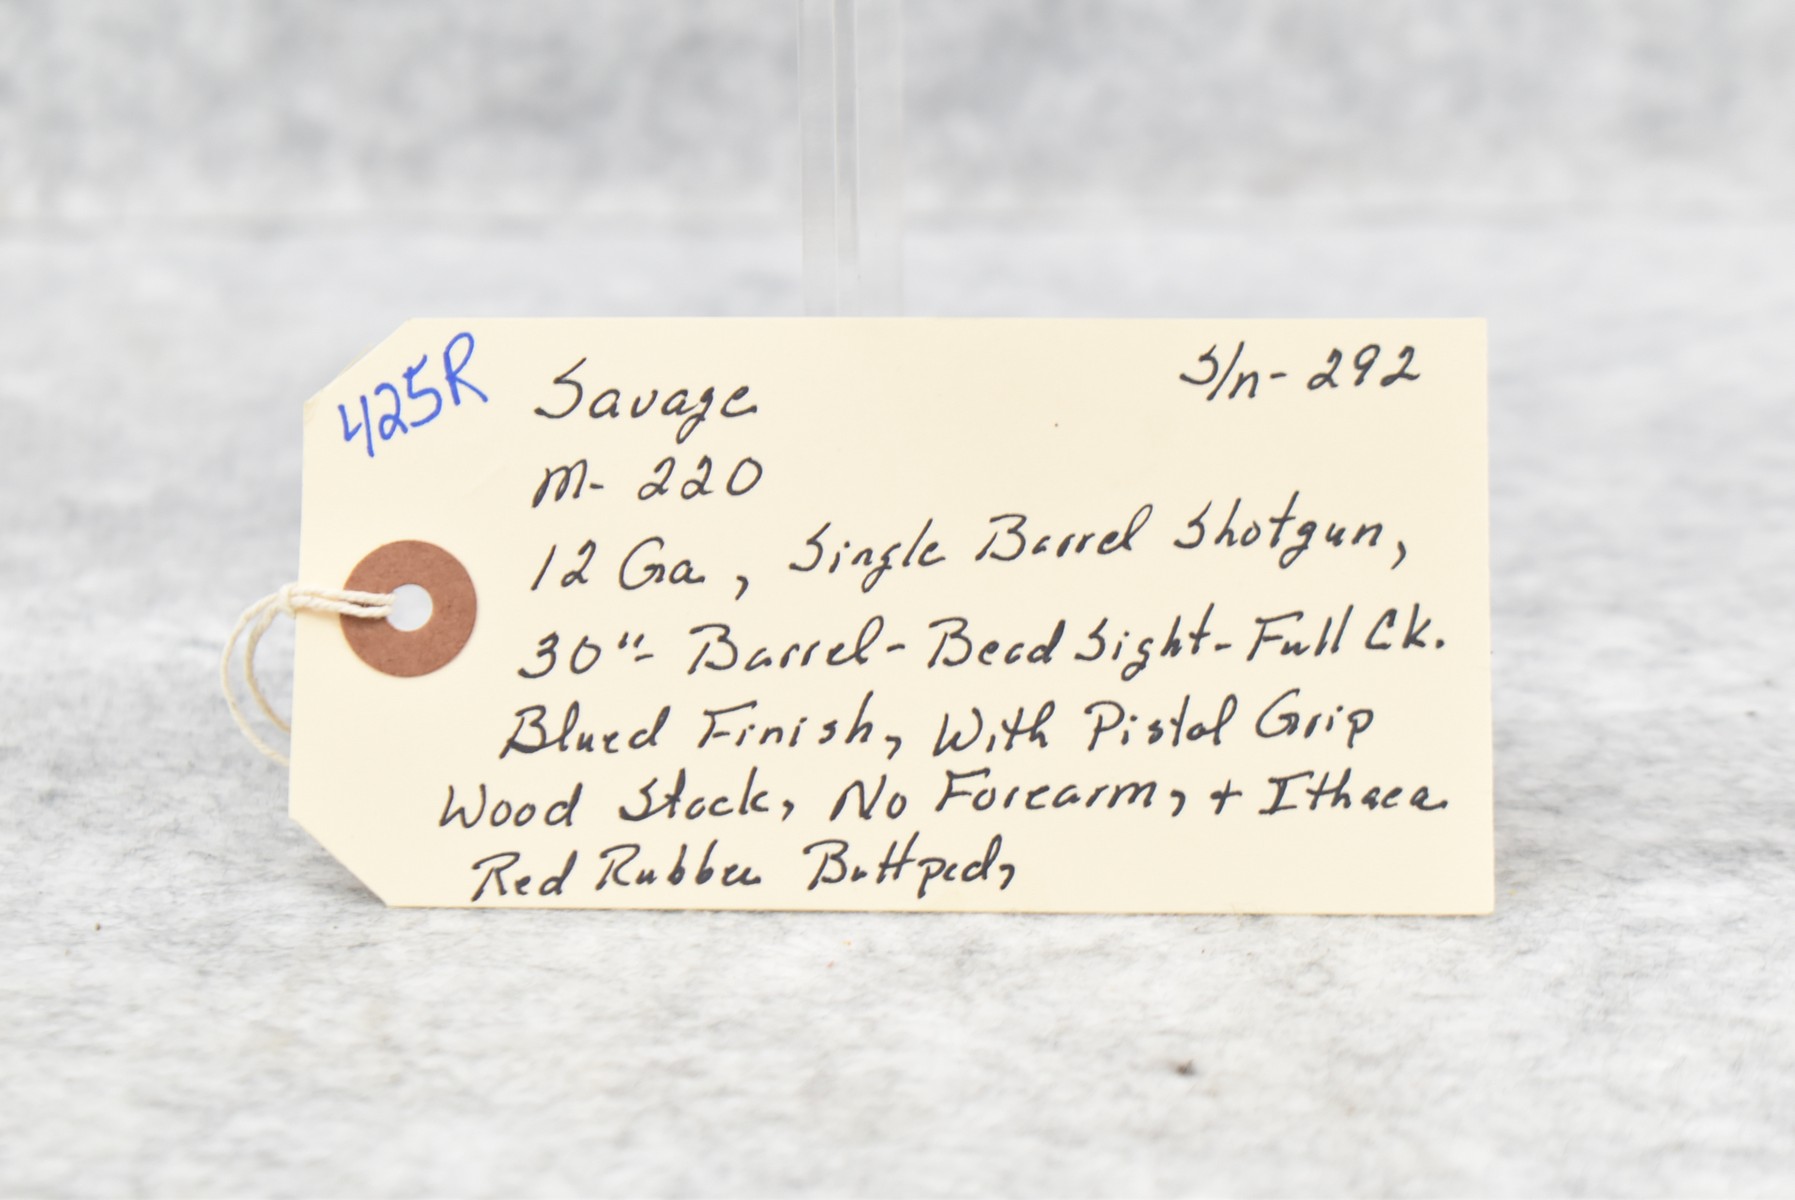 425R
Savage S/n- 292
M- 220
12 Ga, Single Barrel Shotgun,
30"- Barrel- Bead Sight- Full Ck.
Blued Finish, With Pistol Grip
Wood Stock, No Forearm, + Ithaca
Red Rubber Buttpad,